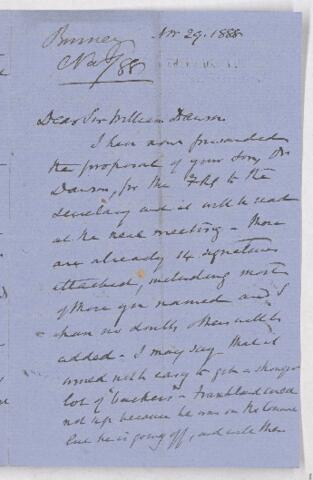 Burney
Nov/88
Nov 29. 1888
Dear Sir William Dawson
I have now forwarded
the proposal of your son, Dr
Dawson, for the FRS to the
Secretary and it will be read
at the next meeting - There
are already 14 signatures
attached, including most
of those you named and I
have no doubt others will be
added - I may say that it
would not be easy to get a stronger
lot of "backers" - Frankland could
not sign because he was on the Council
but he is going off, and will then